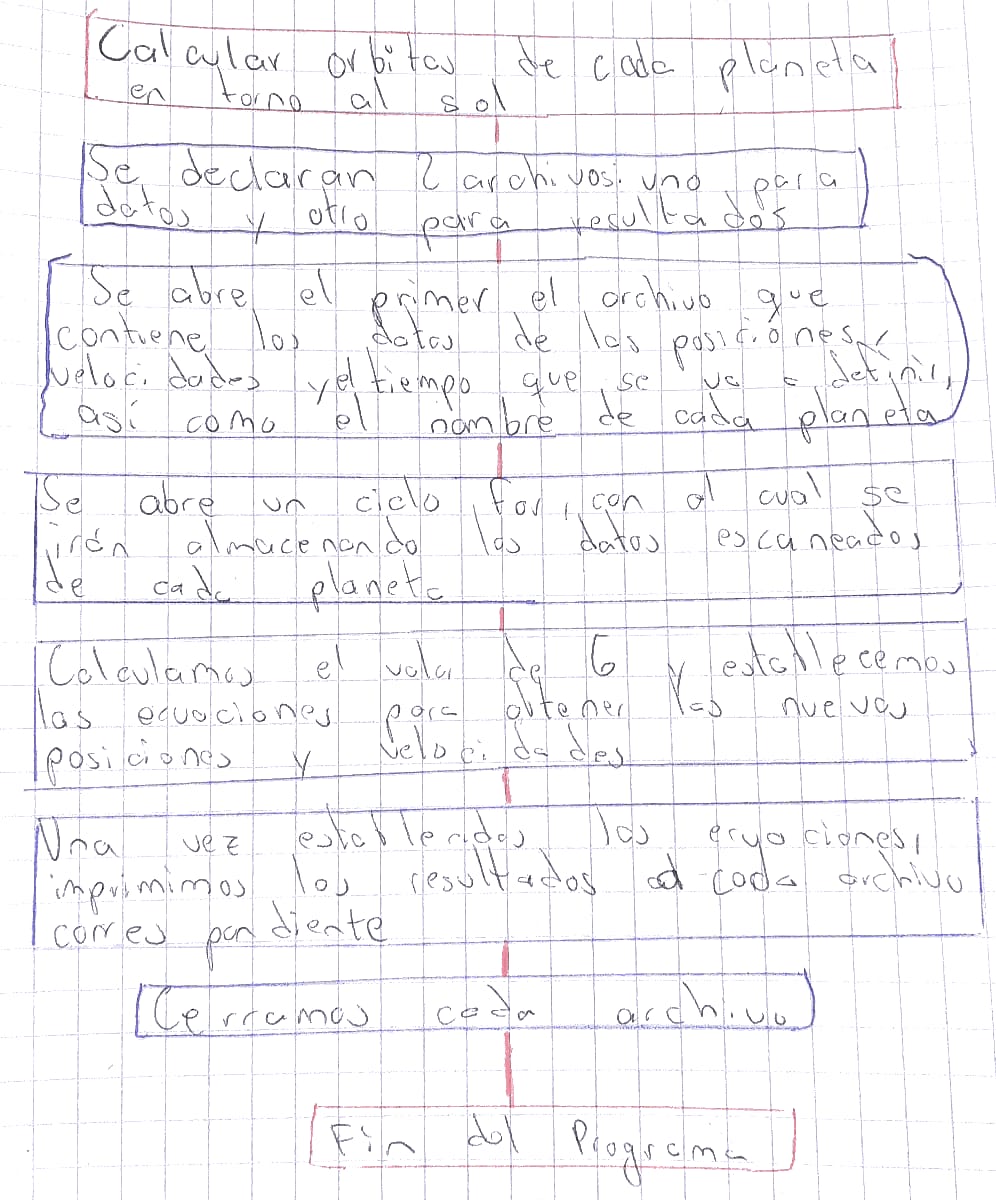 Calcular orbitas de cada planeta
en torno al sol
Se declaran 2 archivos: uno para
datos y otro para resultados
Se abre el primer el archivo que
contiene los datos de las posiciones,
velocidades y el tiempo que se va a definir,
así como el nombre de cada planeta
Se abre un ciclo for, con al cual se
irán almacenando los datos escaneados
de cada planeta
Calculamos el valor de G y establecemos
las ecuaciones para obtener las nuevas
posiciones y velocidades
Una vez establecidas las ecuaciones,
imprimimos los resultados ad cada archivo
correspondiente
Cerramos cada archivo
Fin del Programa